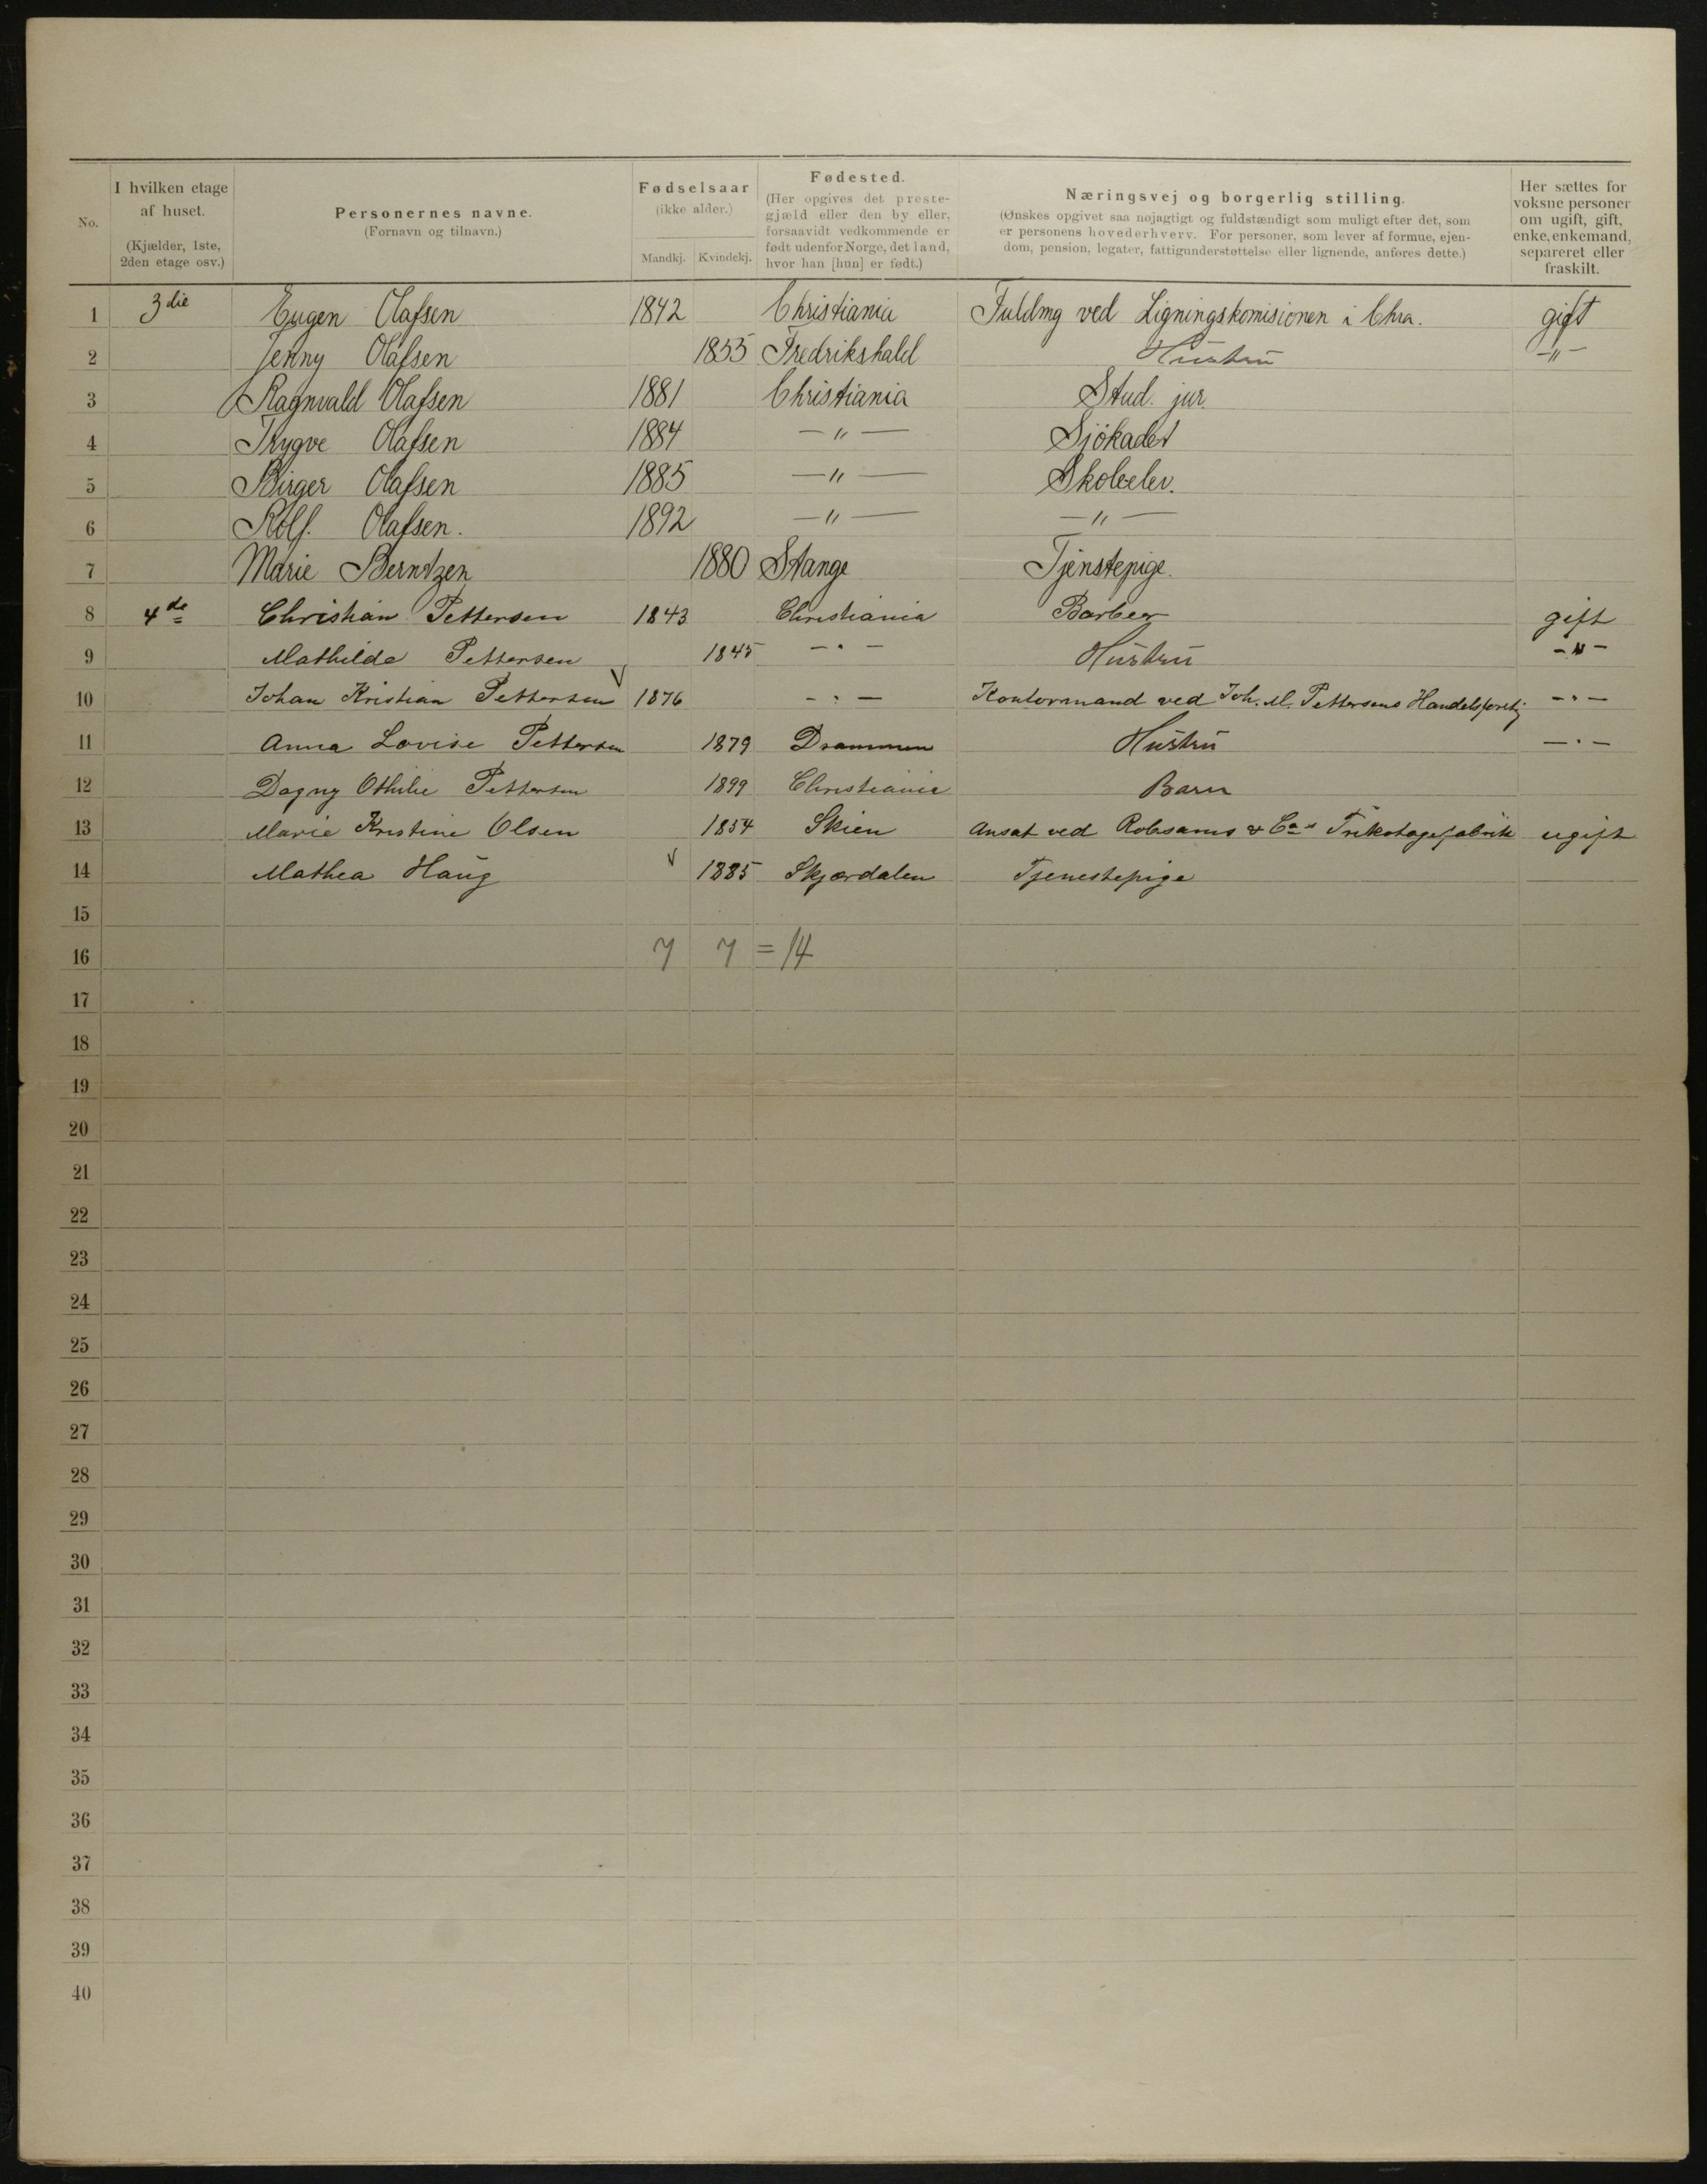 No.
I hvilken etage af huset. (Kjælder, 1ste, 2den etage osv.)
Personernes navne. (Fornavn og tilnavn.)
Fødselsaar (ikke alder.) Mandkj. Kvindekj.
Fødested. (Her opgives det prestegjæld eller den by eller, forsaavidt vedkommende er født udenfor Norge, det land, hvor han [hun] er født.)
Næringsvej og borgerlig stilling. (Ønskes opgivet saa nøjagtigt og fuldstændigt som muligt efter det, som er personens hovederhverv. For personer, som lever af formue, ejendom, pension, legater, fattigunderstøttelse eller lignende, anføres dette.)
Her sættes for voksne personer om ugift, gift, enke, enkemand, separeret eller fraskilt.
1 3die Eugen Olafsen 1842 Christiania Fuldmg ved Ligningskomisionen i Chra. gift
2 Jenny Olafsen 1853 Fredrikshald Hustru -"-
3 Ragnvald Olafsen 1881 Christiania Stud. jur.
4 Trygve Olafsen 1884 -"- Sjökadet
5 Birger Olafsen 1885 -"- Skoleelev.
6 Rolf. Olafsen. 1892 -"- -"-
7 Marie Berntzen 1880 Stange Tjenstepige.
8 4de Christian Pettersen 1843 Christiania Barber gift
9 Mathilde Pettersen 1845 -"- Hustru -"-
10 Johan Kristian Pettersen 1876 -"- Kontormand ved Joh. M. Pettersens -"-
11 Anna Lovise Pettersen 1879 Drammen Hustru -"-
12 Dagny Othilie Pettersen 1899 Christiania Barn
13 Marie Kristine Olsen 1854 Skien Ansat ved Robsams & Cos Trikotagefabrik ugift
14 Mathea Haug 1885 Skjærdalen Tjenestepige
15
16 7 7 = 14
17
18
19
20
21
22
23
24
25
26
27
28
29
30
31
32
33
34
35
36
37
38
39
40